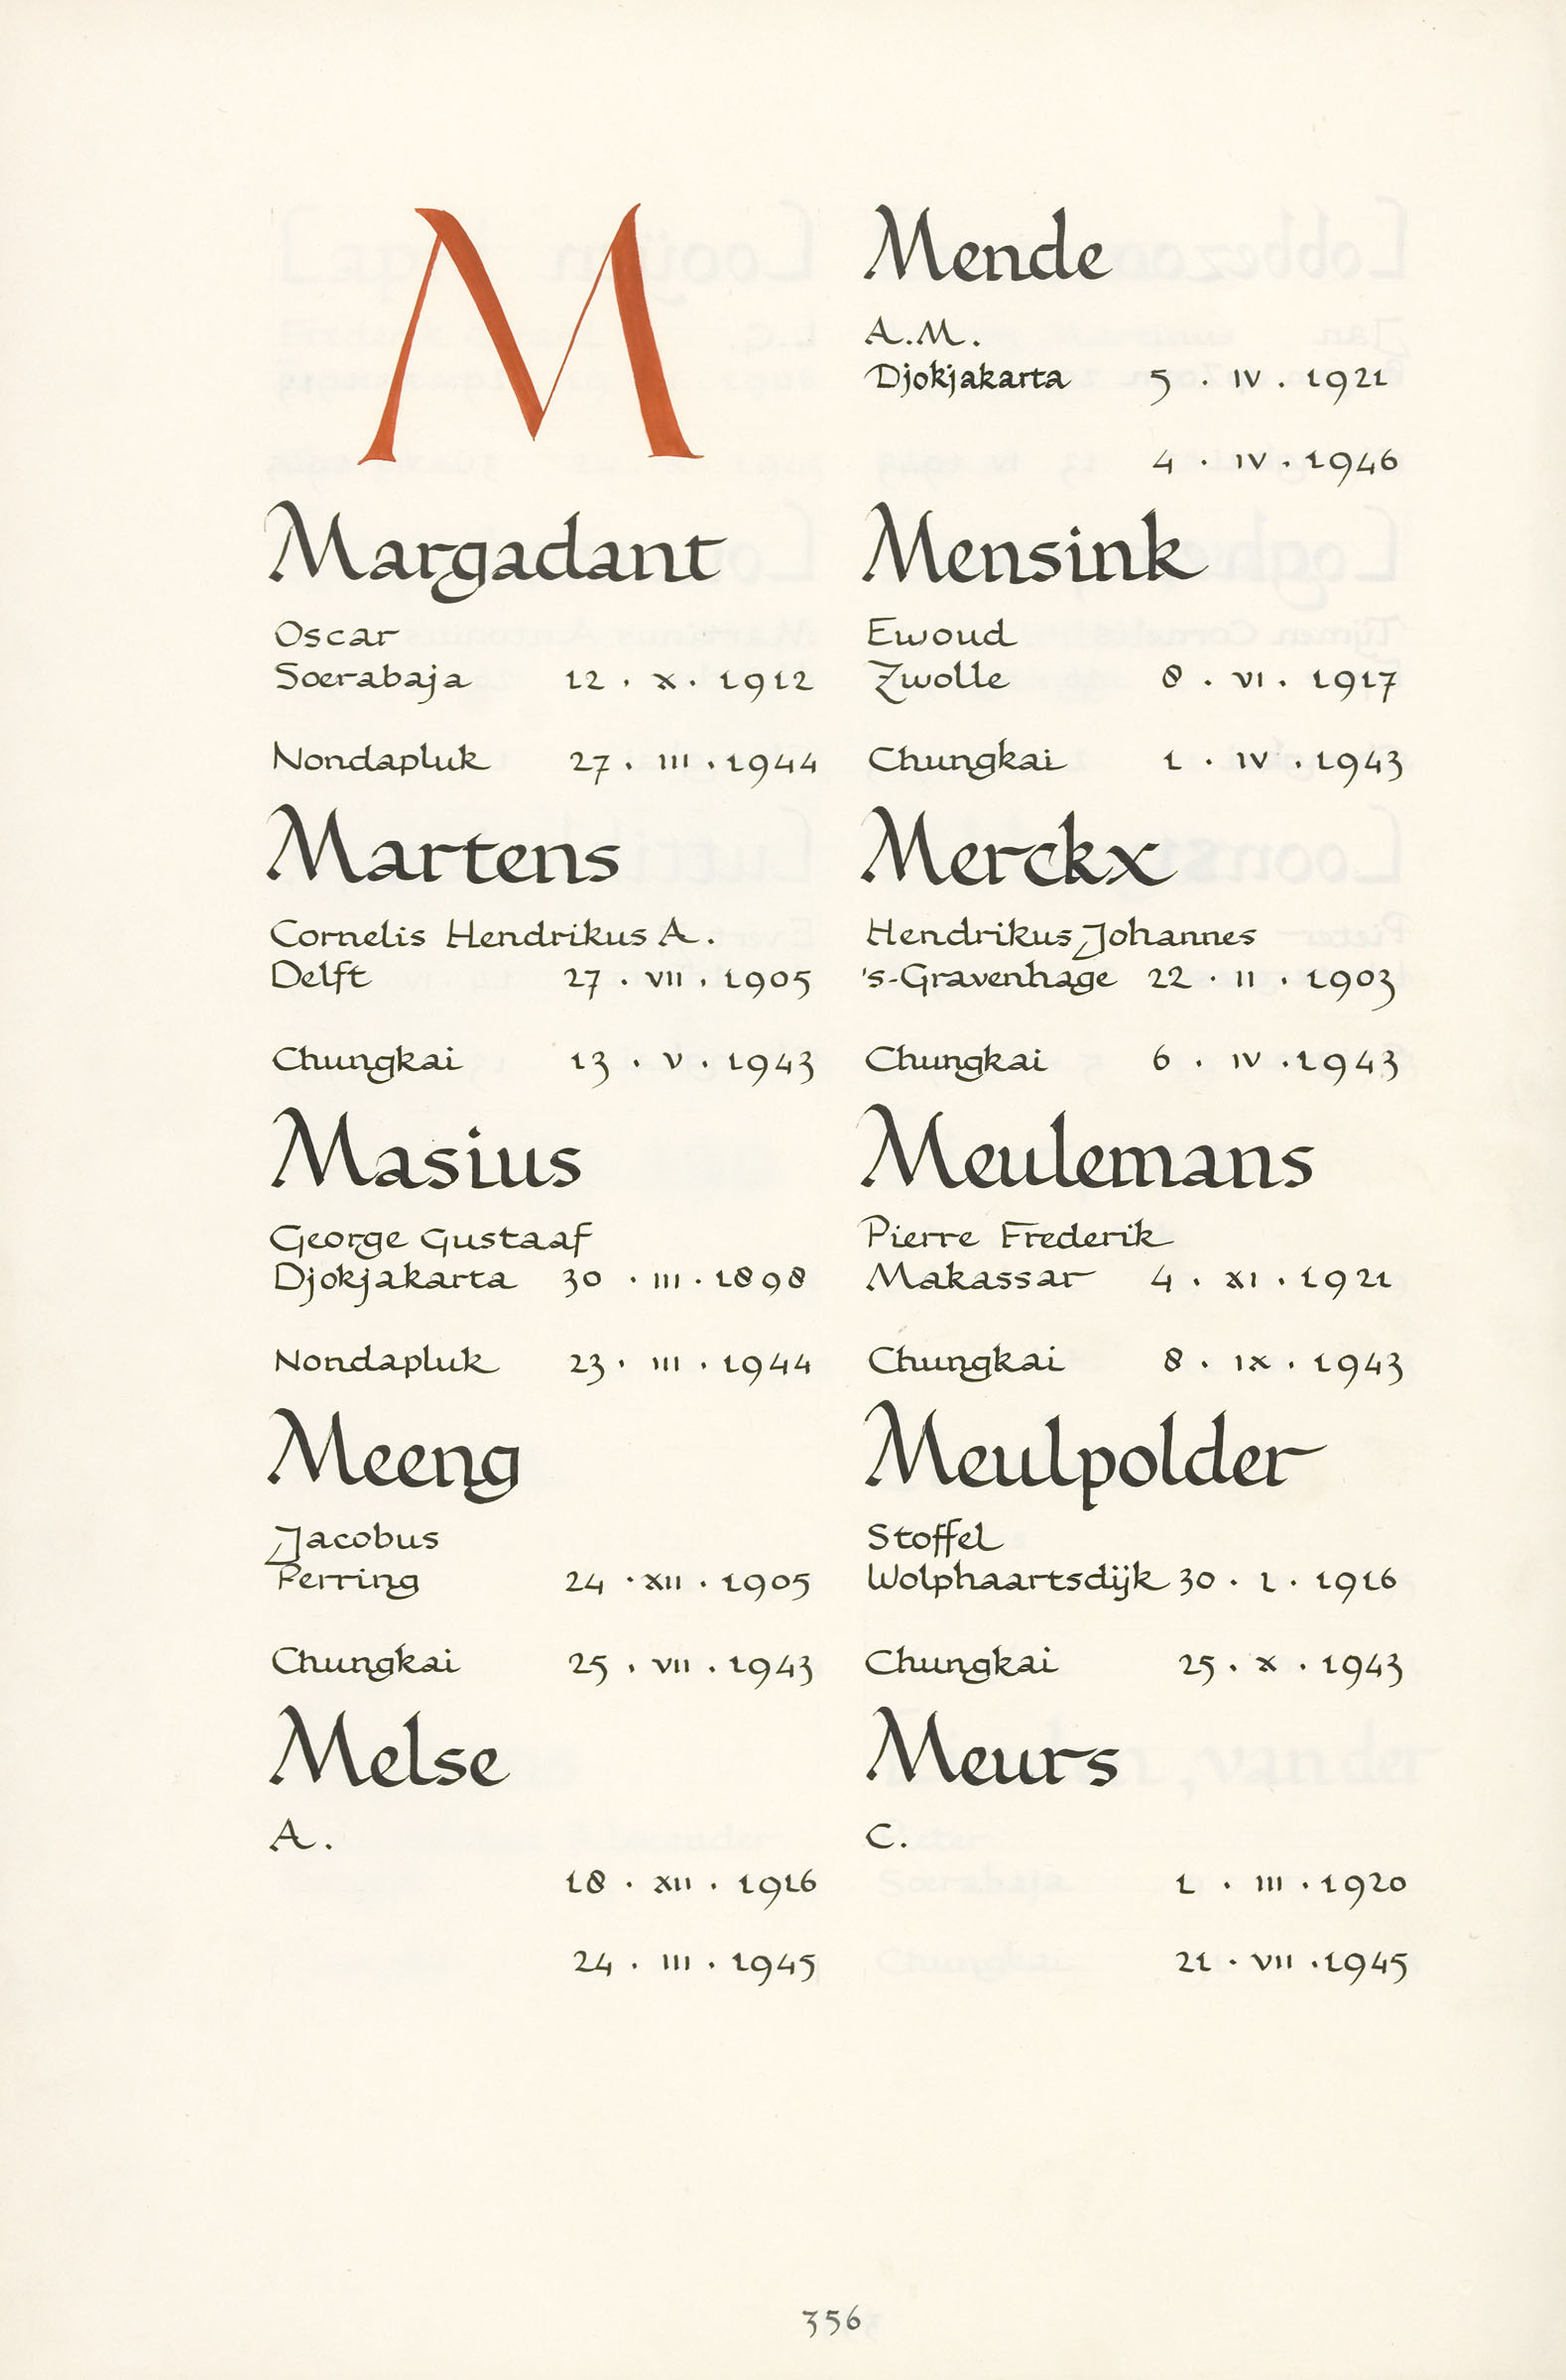 M
Margadant
Oscar
Soerabaja 12 . X . 1912
Nondapluk 27 . III . 1944
Martens
Cornelis Hendrikus A.
Delft 27 . VII . 1905
Chungkai 13 . V . 1943
Masius
George Gustaaf
Djokjakarta 30 . III . 1898
Nondapluk 23 . III . 1944
Meeng
Jacobus
Perring 24 . XII . 1905
Chungkai 25 . VII . 1943
Melse
A.
18 . XII . 1916
24 . III . 1945
Mende
A.M.
Djokjakarta 5 . IV . 1921
4 . IV . 1946
Mensink
Ewoud
Zwolle 8 . VI . 1917
Chungkai 1 . IV . 1943
Merckx
Hendrikus Johannes
's-Gravenhage 22 . II . 1903
Chungkai 6 . IV . 1943
Meulemans
Pierre Frederik
Makassar 4 . XI . 1921
Chungkai 8 . IX . 1943
Meulpolder
Stoffel
Wolphaartsdijk 30 . 1 . 1916
Chungkai 25 . X . 1943
Meurs
C.
1 . III . 1920
21 . VII . 1945
356